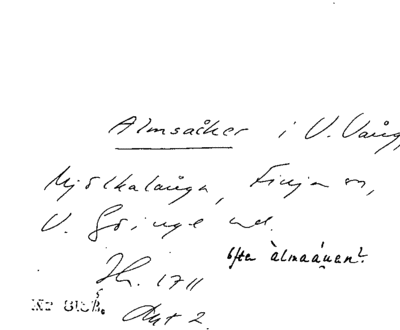 Almsåker i V. Vång,
Mjölkalånga, Finja sn,
V. Göinge hd.
ofta àlmaákan?
Jh. 1711
Akt 2.